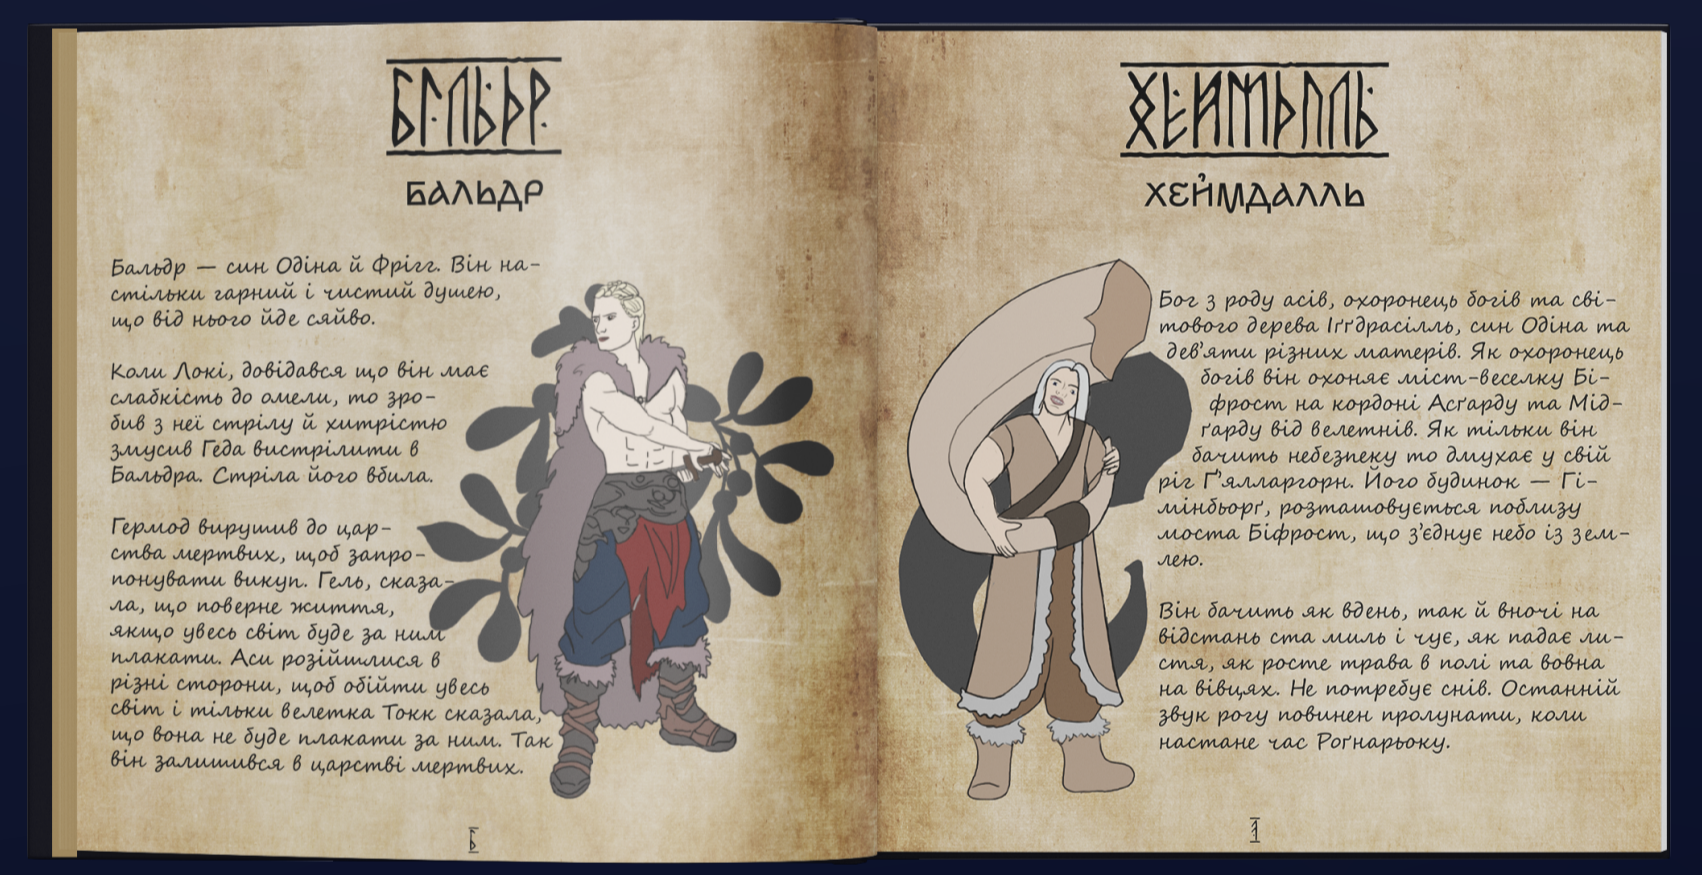 БАЛЬДР
БАЛЬДР
Бальдр — син Одіна й Фрігг. Він на-
стільки гарний і чистий душею,
що від нього йде сяйво.
Коли Локі, довідався що він має
слабкість до омели, то зро-
бив з неї стрілу й хитрістю
змусив Геда вистрілити в
Бальдра. Стріла його вбила.
Гермод вирушив до цар-
ства мертвих, щоб запро-
понувати викуп. Гель, сказа-
ла, що поверне життя,
якщо увесь світ буде за ним
плакати. Аси розійшлися в
різні сторони, щоб обійти увесь
світ і тільки велетка Токк сказала,
що вона не буде плакати за ним. Так
він залишився в царстві мертвих.
6
ХЕЙМДАЛЛЬ
ХЕЙМДАЛЛЬ
Бог з роду асів, охоронець богів та сві-
тового дерева Іґґдрасілль, син Одіна та
дев'яти різних матерів. Як охоронець
богів він охоняє міст-веселку Бі-
фрост на кордоні Асґарду та Мід-
ґарду від велетнів. Як тільки він
бачить небезпеку то дмухає у свій
ріг Ґ'ялларгорн. Його будинок — Гі-
мінбьорґ, розташовується поблизу
моста Біфрост, що з'єднує небо із зем-
лею.
Він бачить як вдень, так й вночі на
відстань ста миль і чує, як падає ли-
стя, як росте трава в полі та вовна
на вівцях. Не потребує снів. Останній
звук рогу повинен пролунати, коли
настане час Роґнарьоку.